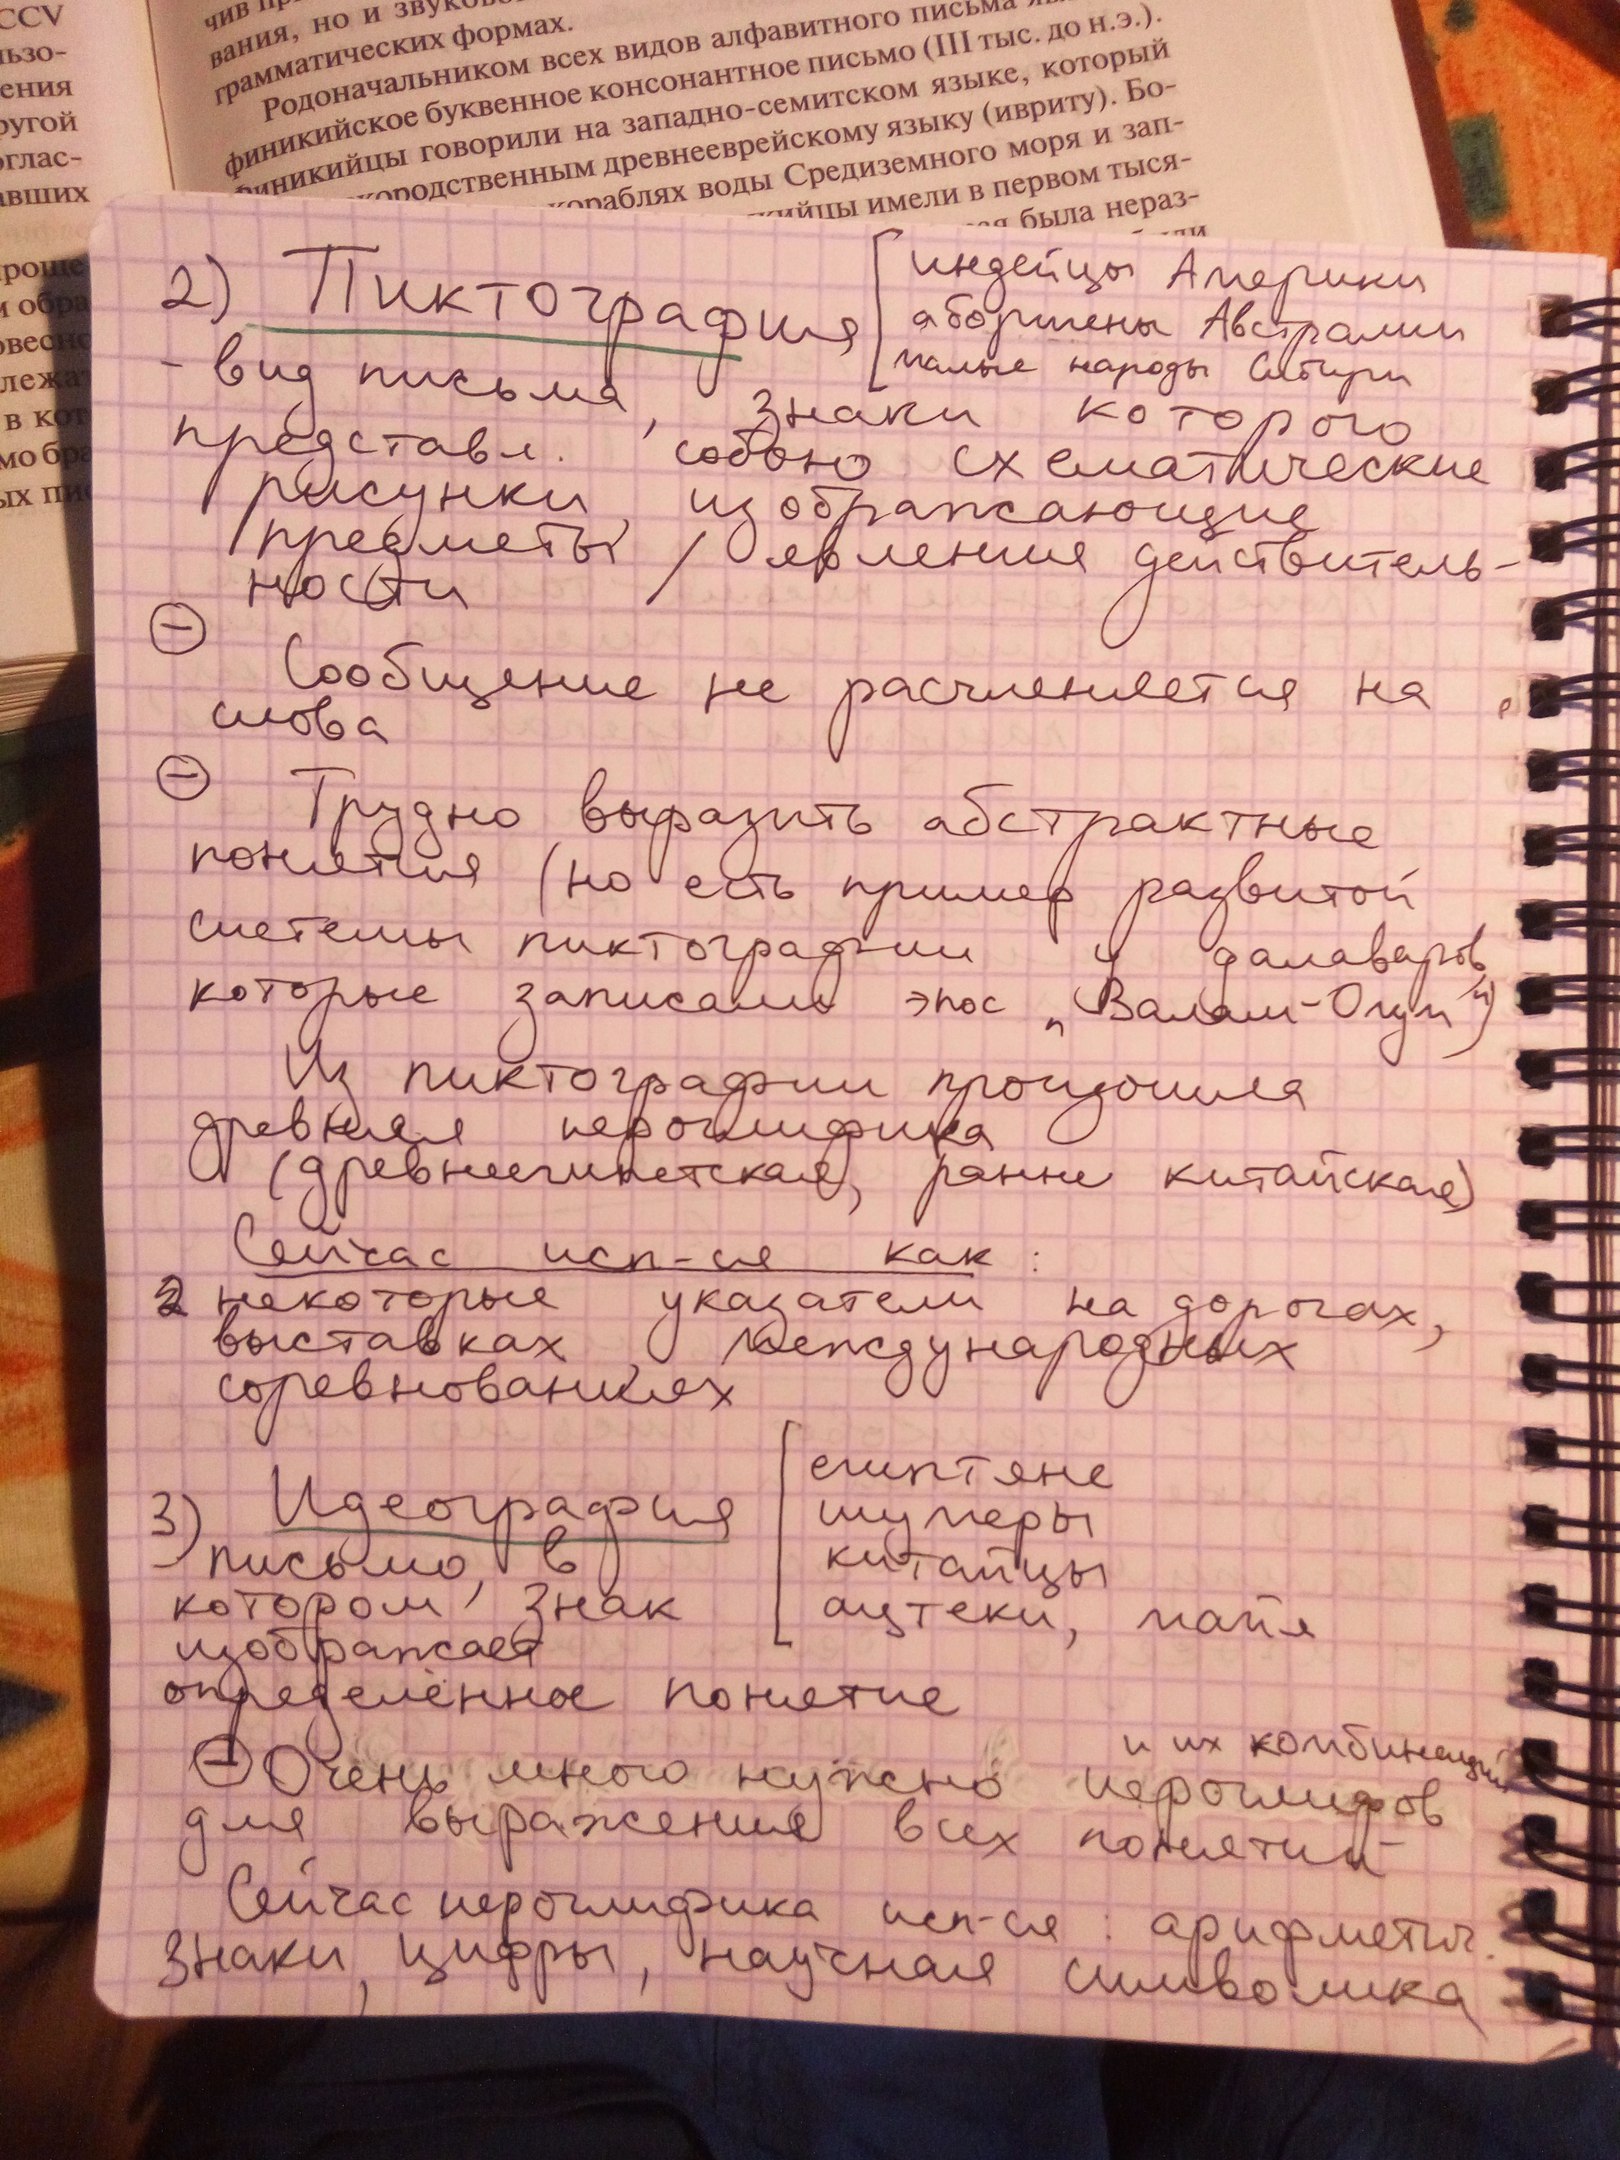 CCV
льзо-
ения
ругой
оглас-
авших
вания, но и
грамматических формах.
Родоначальником всех видов алфавитного письма
финикийское буквенное консонантное письмо (III тыс. до н.э.).
финикийцы говорили на западно-семитском языке, который
кородственным древнееврейскому языку (ивриту). Бо-
кораблях воды Средиземного моря и зап-
кийцы имели в первом тыся-
была нераз-
проще
и обра
овесно
лежат
в кот
мо бра
ых пис
2) Пиктография
индейцы Америки
аборигены Австралии
малые народы Сибири
- вид письма, знаки которого
представл. собою схематические
рисунки, изображающие
предметы / явления действитель-
ности
⊖ Сообщение не расчленяется на
слова
⊖ Трудно выразить абстрактные
понятия (но есть пример развитой
системы пиктографии у далаваров,
которые записали эпос „Валам-Олум")
Из пиктографии произошла
древняя иероглифика
(древнеегипетская, ранне китайская)
Сейчас исп-ся как:
некоторые указатели на дорогах,
выставках, международных
соревнованиях
3) Идеография
египтяне
шумеры
китайцы
ацтеки, майя
письмо, в
котором знак
изображает
определённое понятие
и их комбинаций
⊖ Очень много нужно иероглифов
для выражения всех понятий
Сейчас иероглифика исп-ся: арифметич.
знаки, цифры, научная символика